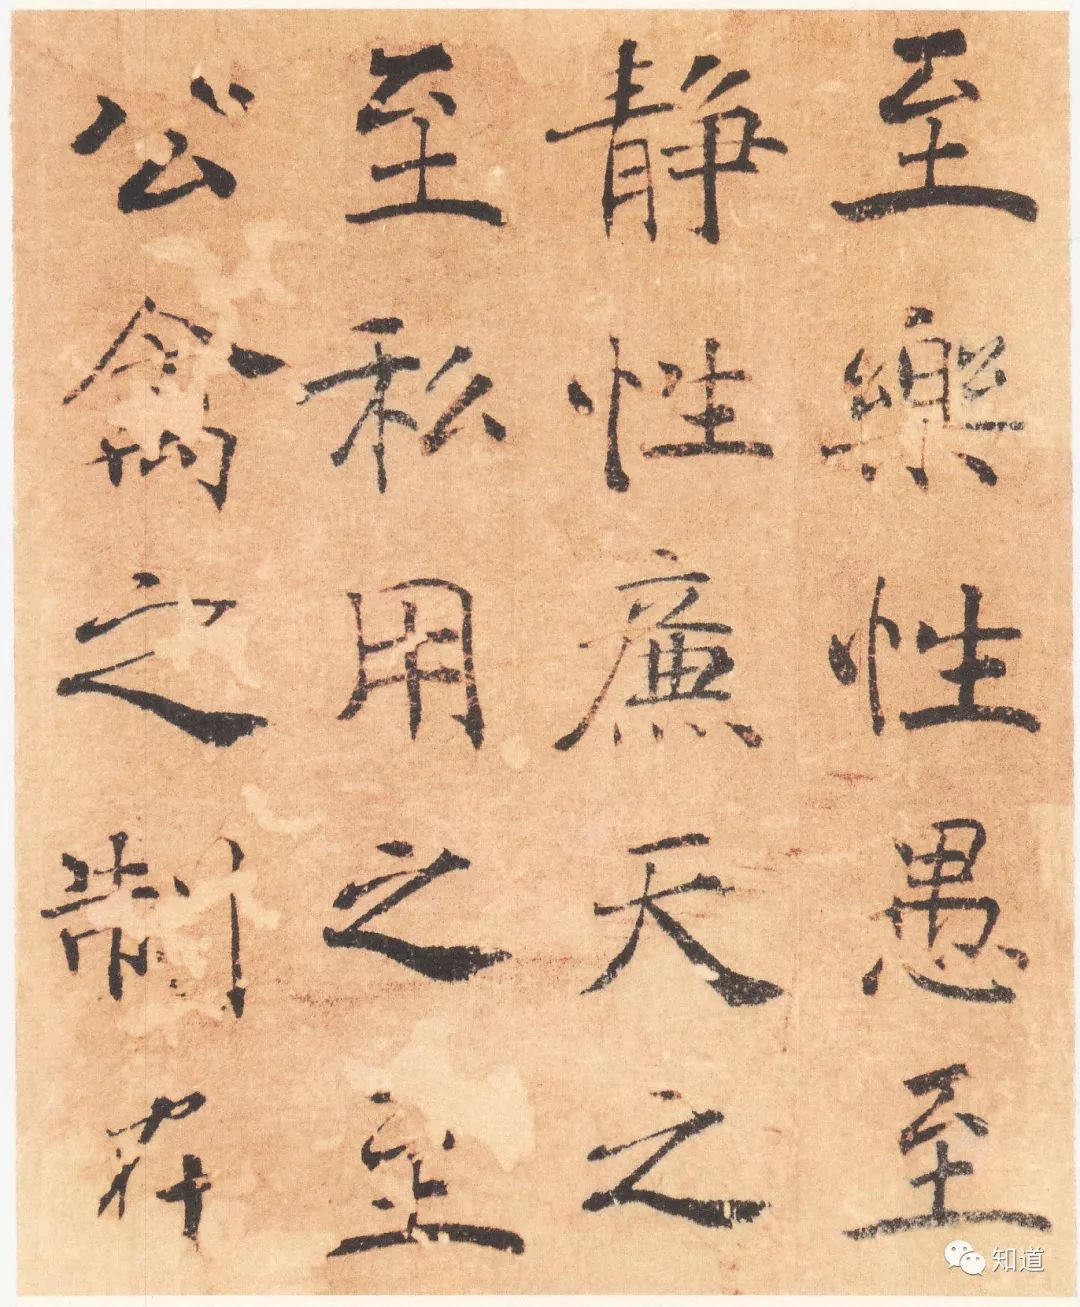 至樂性愚至
静性廉天之
至私用之至
公禽之制在
知道